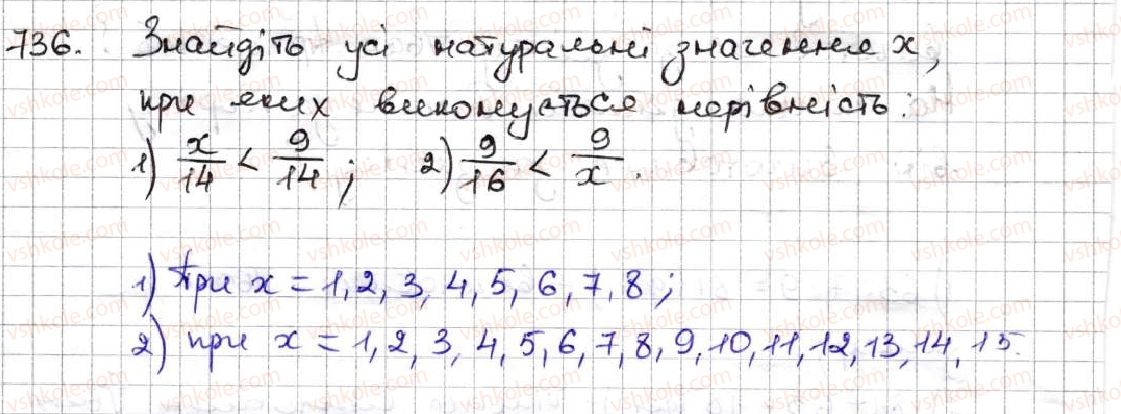 736. Знайдіть усі натуральні значення x,
при яких виконується нерівність:
1) x/14 < 9/14; 2) 9/16 < 9/x.
1) При x = 1, 2, 3, 4, 5, 6, 7, 8;
2) при x = 1, 2, 3, 4, 5, 6, 7, 8, 9, 10, 11, 12, 13, 14, 15.